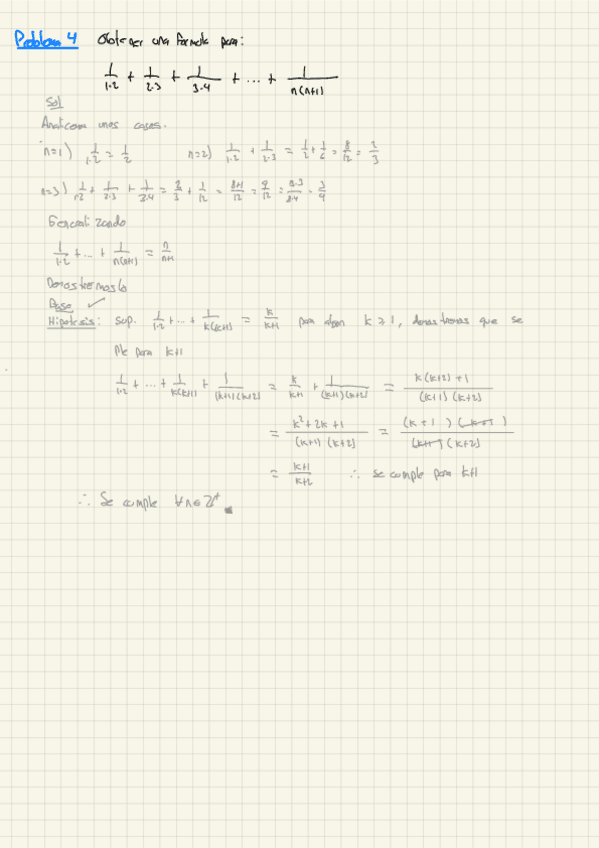 Problem 4 Obtener una formula para:
1/1·2 + 1/2·3 + 1/3·4 + ... + 1/n(n+1)
Sol
Analicemos unos casos.
n=1) 1/1·2 = 1/2 n=2) 1/1·2 + 1/2·3 = 1/2 + 1/6 = 8/12 = 2/3
n=3) 1/1·2 + 1/2·3 + 1/3·4 = 2/3 + 1/12 = 8+1/12 = 9/12 = 3·3/3·4 = 3/4
Generalizando
1/1·2 + ... + 1/n(n+1) = n/n+1
Demostremoslo
Base ✓
Hipotesis: sup. 1/1·2 + ... + 1/k(k+1) = k/k+1 para algun k ≥ 1, demostremos que se
para k+1
1/1·2 + ... + 1/k(k+1) + 1/(k+1)(k+2) = k/k+1 + 1/(k+1)(k+2) = k(k+2)+1/(k+1)(k+2)
= k²+2k+1/(k+1)(k+2) = (k+1)(k+1)/(k+1)(k+2)
= k+1/k+2 ∴ se cumple para k+1
∴ Se cumple ∀n∈ℤ⁺